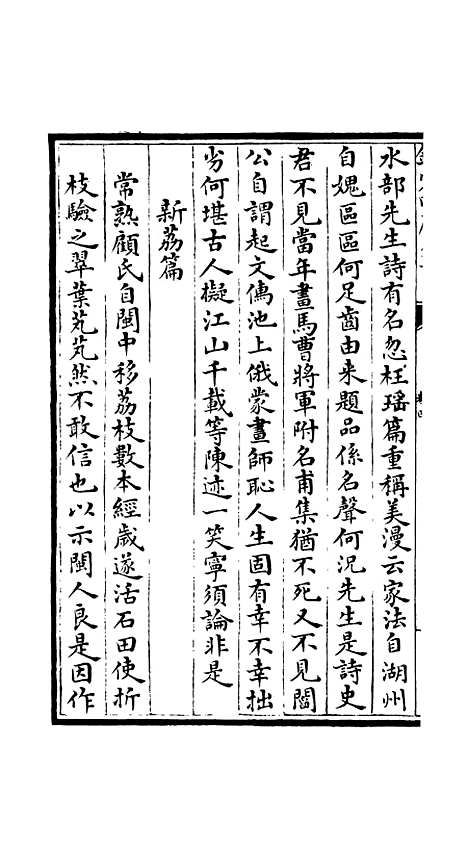 水部先生詩有名忽枉瑤篇重稱美漫云家法自湖州
自媿區區何足齒由来題品係名聲何況先生是詩史
君不見當年畫馬曹將軍附名甫集猶不死又不見閻
公自謂起文儁池上俄蒙畫師恥人生固有幸不幸拙
劣何堪古人擬江山千載等陳迹一笑寧須論非是
新荔篇
常熟顧氏自閩中移荔枝數本經歲遂活石田使折
枝驗之翠葉芃芃然不敢信也以示閩人良是因作